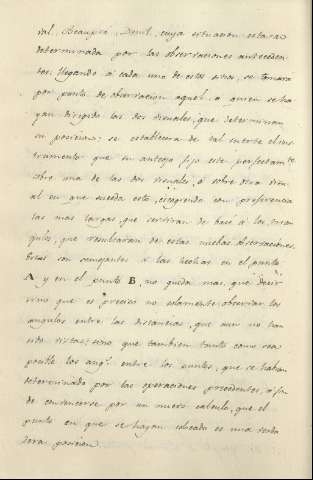 ral, Beaupré, Denil, cuya situacion estará
determinada por las observaciones anteceden-
tes; llegando á cada uno de estos sitios, se tomara
por punto de observacion aquel, a quien se ha-
yan dirigido las dos visuales, que determinan
su posicion: se establecera de tal suerte el ins-
trumento que su anteojo fijo esté perfectam.te
sobre una de las dos visuales, ó sobre otra
al en que suceda esto, eligiendo con preferencia
las mas largas, que serviran de base á los trian-
gulos, que resultaran de estas nuebas observaciones.
Estas son semejantes á las hechas en el punto
A y en el punto B, no queda mas, que decir
sino que es preciso no solamente observar los
angulos entre las distancias, que aun no han
sido vistas; sino que tambien tanto como sea
posible los ang.s entre los puntos, que se haban
determinado por las operaciones precedentes, á fin
de convencerse por un nuevo calculo, que el
punto en que se hayan colocado es una verda-
dera posicion.